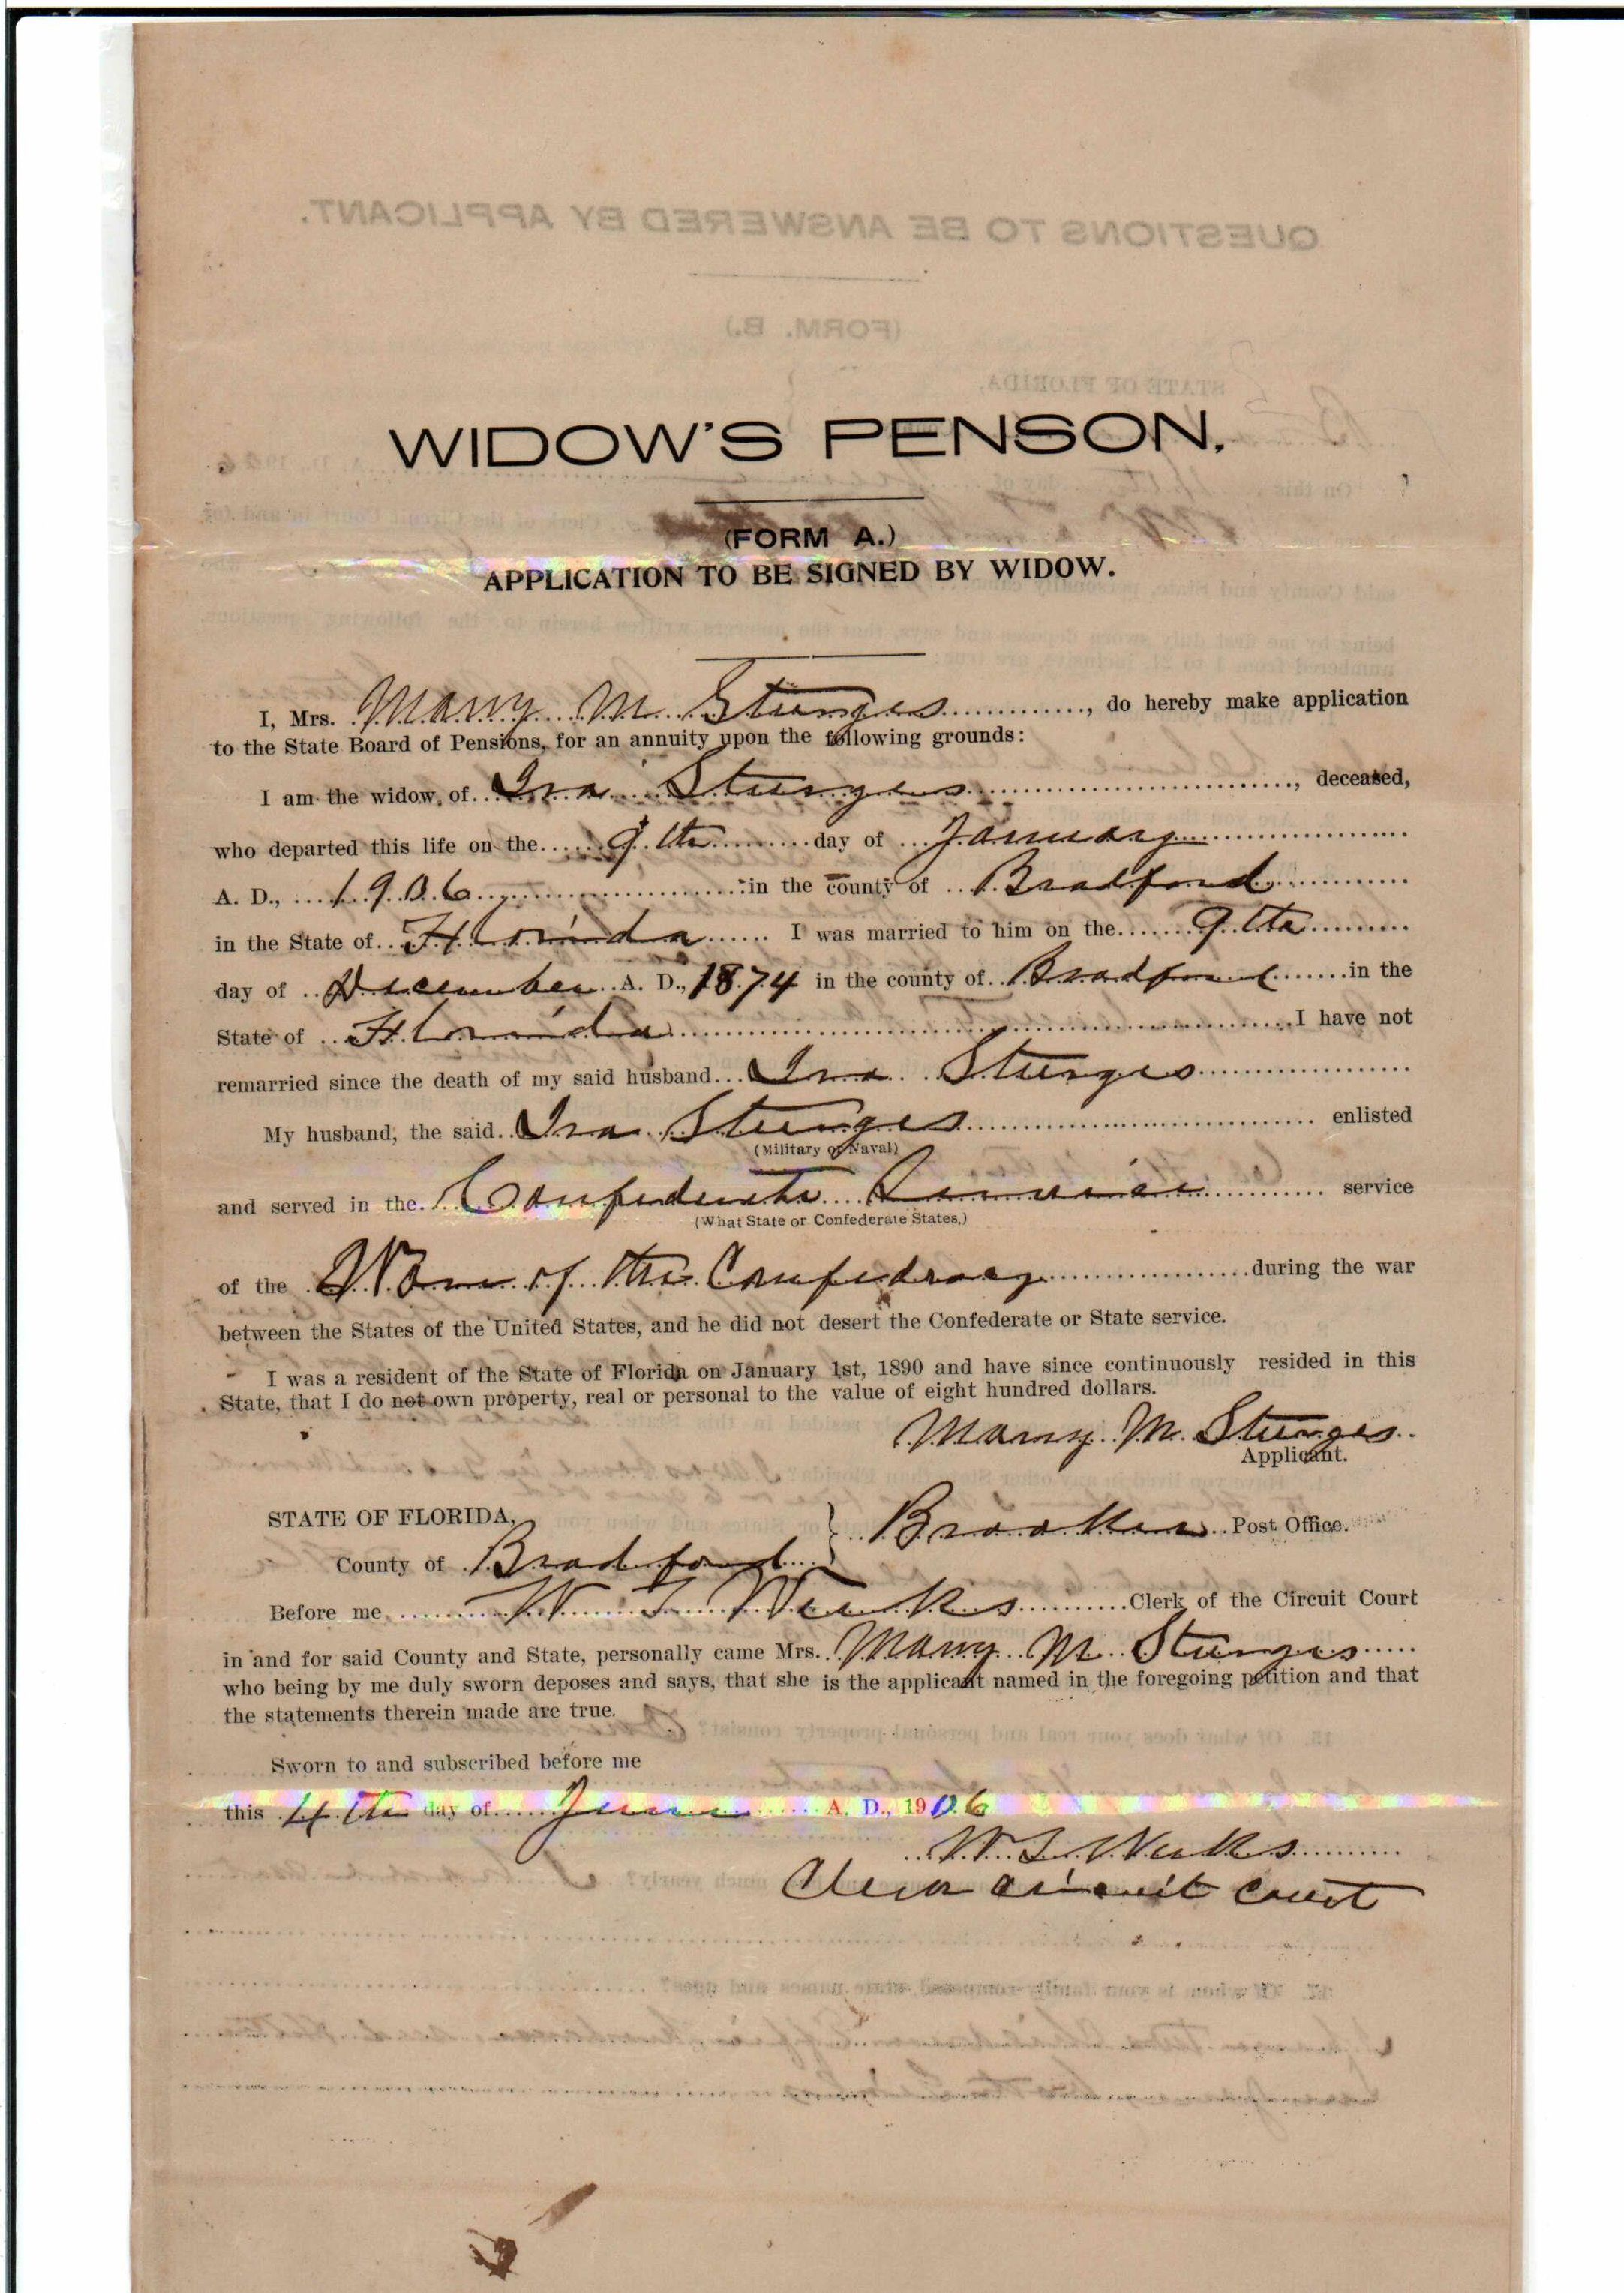 WIDOW'S PENSON.
(FORM A.)
APPLICATION TO BE SIGNED BY WIDOW.
I, Mrs. Mary M Sturges, do hereby make application
to the State Board of Pensions, for an annuity upon the following grounds:
I am the widow of Ira Sturges, deceased,
who departed this life on the 9th day of January
A. D., 1906 in the county of Bradford
in the State of Florida I was married to him on the 9th
day of December A. D., 1874 in the county of Bradford in the
State of Florida I have not
remarried since the death of my said husband Ira Sturges
My husband, the said Ira Sturges enlisted
(Military or Naval)
and served in the Confederate service
(What State or Confederate States,)
of the War of the Confedracy during the war
between the States of the United States, and he did not desert the Confederate or State service.
I was a resident of the State of Florida on January 1st, 1890 and have since continuously resided in this
State, that I do not own property, real or personal to the value of eight hundred dollars.
Mary M. Sturges
Applicant.
STATE OF FLORIDA,
Brooker Post Office.
County of Bradford
Before me W T Weeks Clerk of the Circuit Court
in and for said County and State, personally came Mrs. Mary M. Sturges
who being by me duly sworn deposes and says, that she is the applicant named in the foregoing petition and that
the statements therein made are true.
Sworn to and subscribed before me
this 4th day of June A. D., 1906
W. T. Weeks
Clerk circuit court